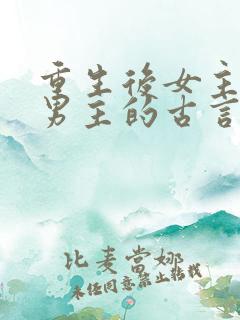 重生後女主
男主的古言
比麦當娜
未任同意禁止转载